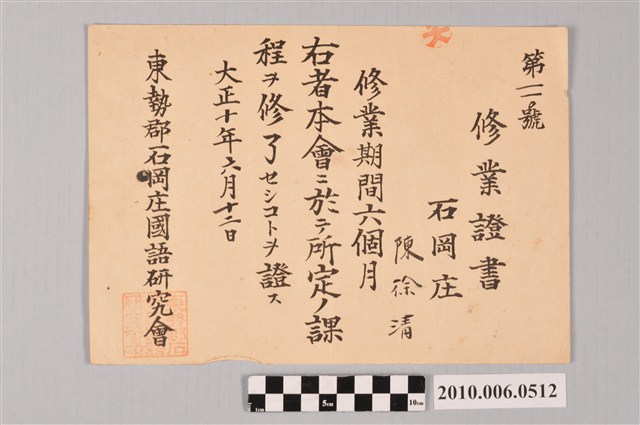 第一一號
修業證書
石岡庄
陳徐清
修業期間六個月
右者本會ニ於テ所定ノ課
程ヲ修了セシコトヲ證ス
大正十年六月十二日
東勢郡石岡庄國語研究會
1cm
5cm
10cm
2010.006.0512